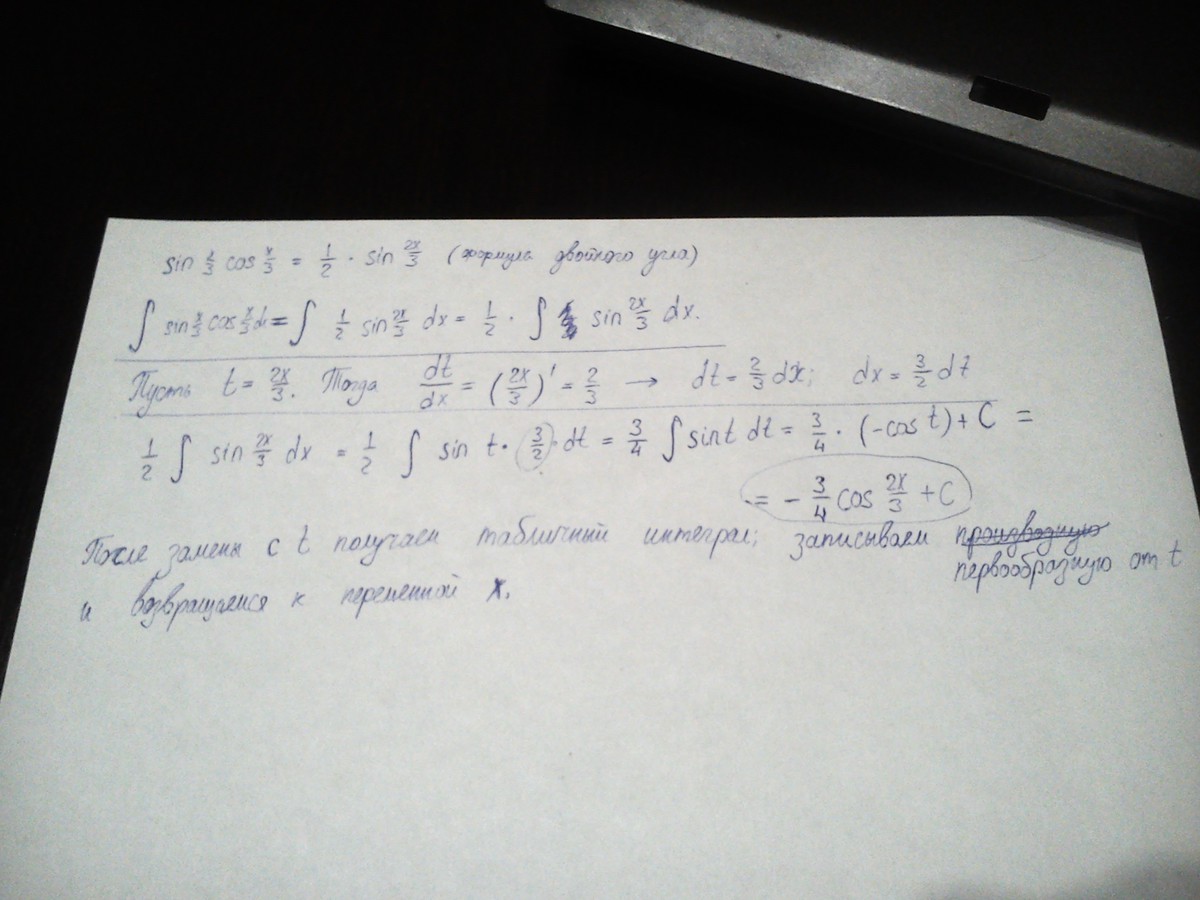 sin x/3 cos x/3 = 1/2 · sin 2x/3 (формула двойного угла)
∫ sin x/3 cos x/3 dx = ∫ 1/2 sin 2x/3 dx = 1/2 · ∫ sin 2x/3 dx.
Пусть t = 2x/3. Тогда dt/dx = (2x/3)' = 2/3 → dt = 2/3 dx; dx = 3/2 dt
1/2 ∫ sin 2x/3 dx = 1/2 ∫ sin t · 3/2 · dt = 3/4 ∫ sin t dt = 3/4 · (-cos t) + C =
= - 3/4 cos 2x/3 + C
После замены с t получаем табличный интеграл; записываем производную
первообразную от t
и возвращаемся к переменной x.